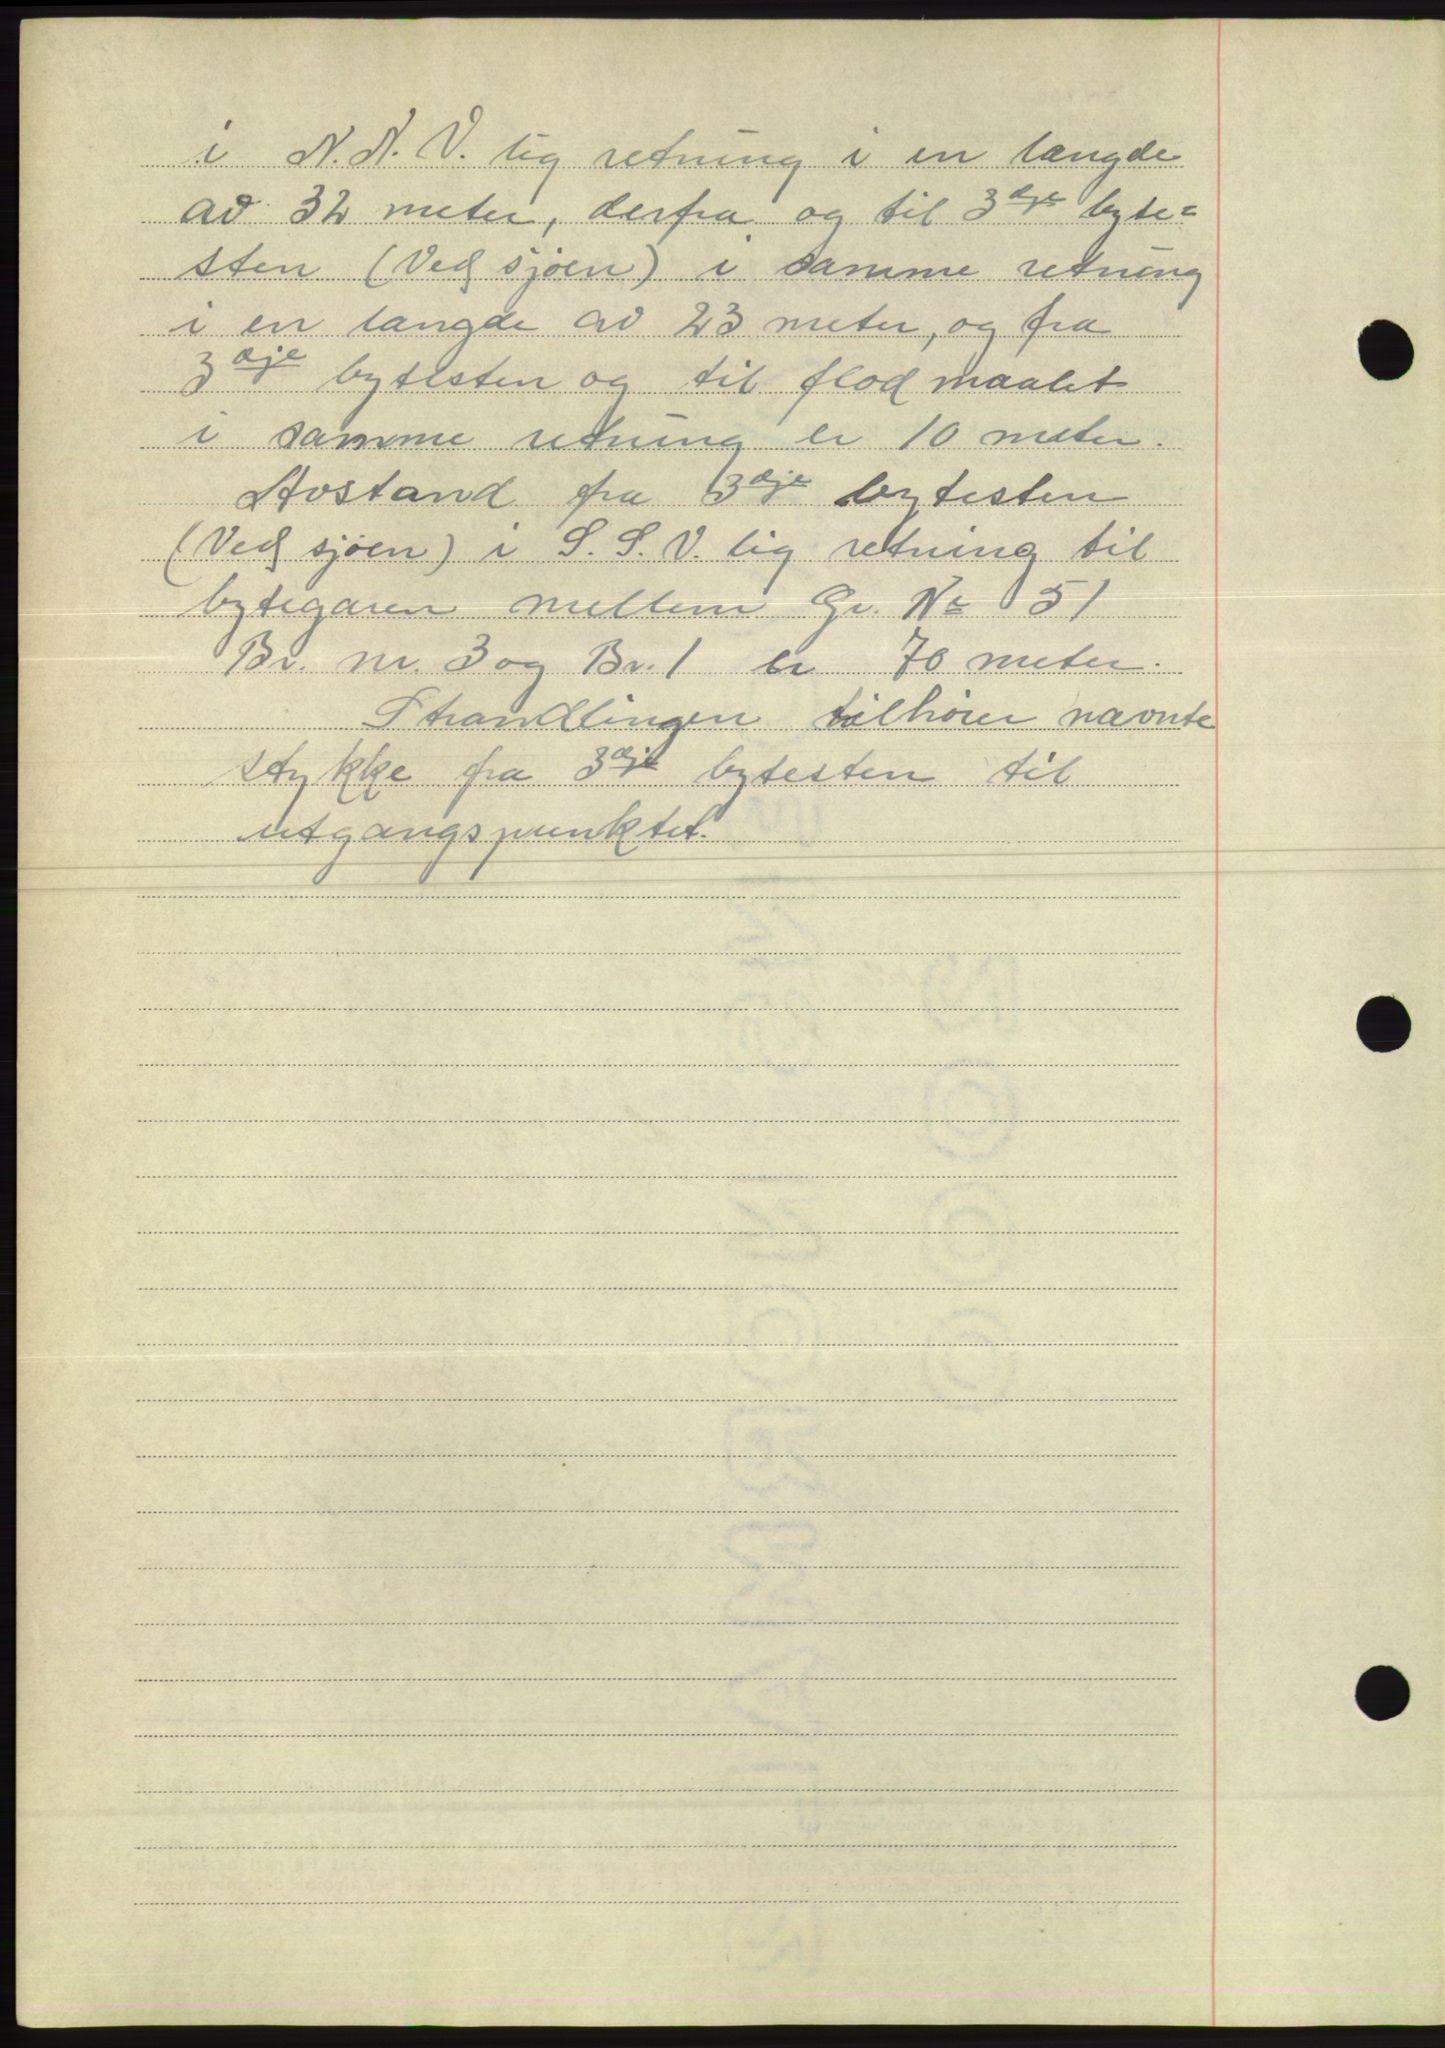 i N. N. V. lig retning i en længde
av 32 meter, derfra og til 3dje byte=
sten (Ved sjøen) i samme retning
i en længde av 23 meter, og fra
3dje bytesten og til flodmaalet
i samme retning er 10 meter.
Avstand fra 3dje bytesten
(Ved sjøen) i S. S. V. lig retning til
bytegaren mellem Gr. No 51
Br. nr. 3 og Br. 1 er 70 meter.
Strandlingen tilhører nævnte
stykke fra 3dje bytesten til
utgangspunktet.